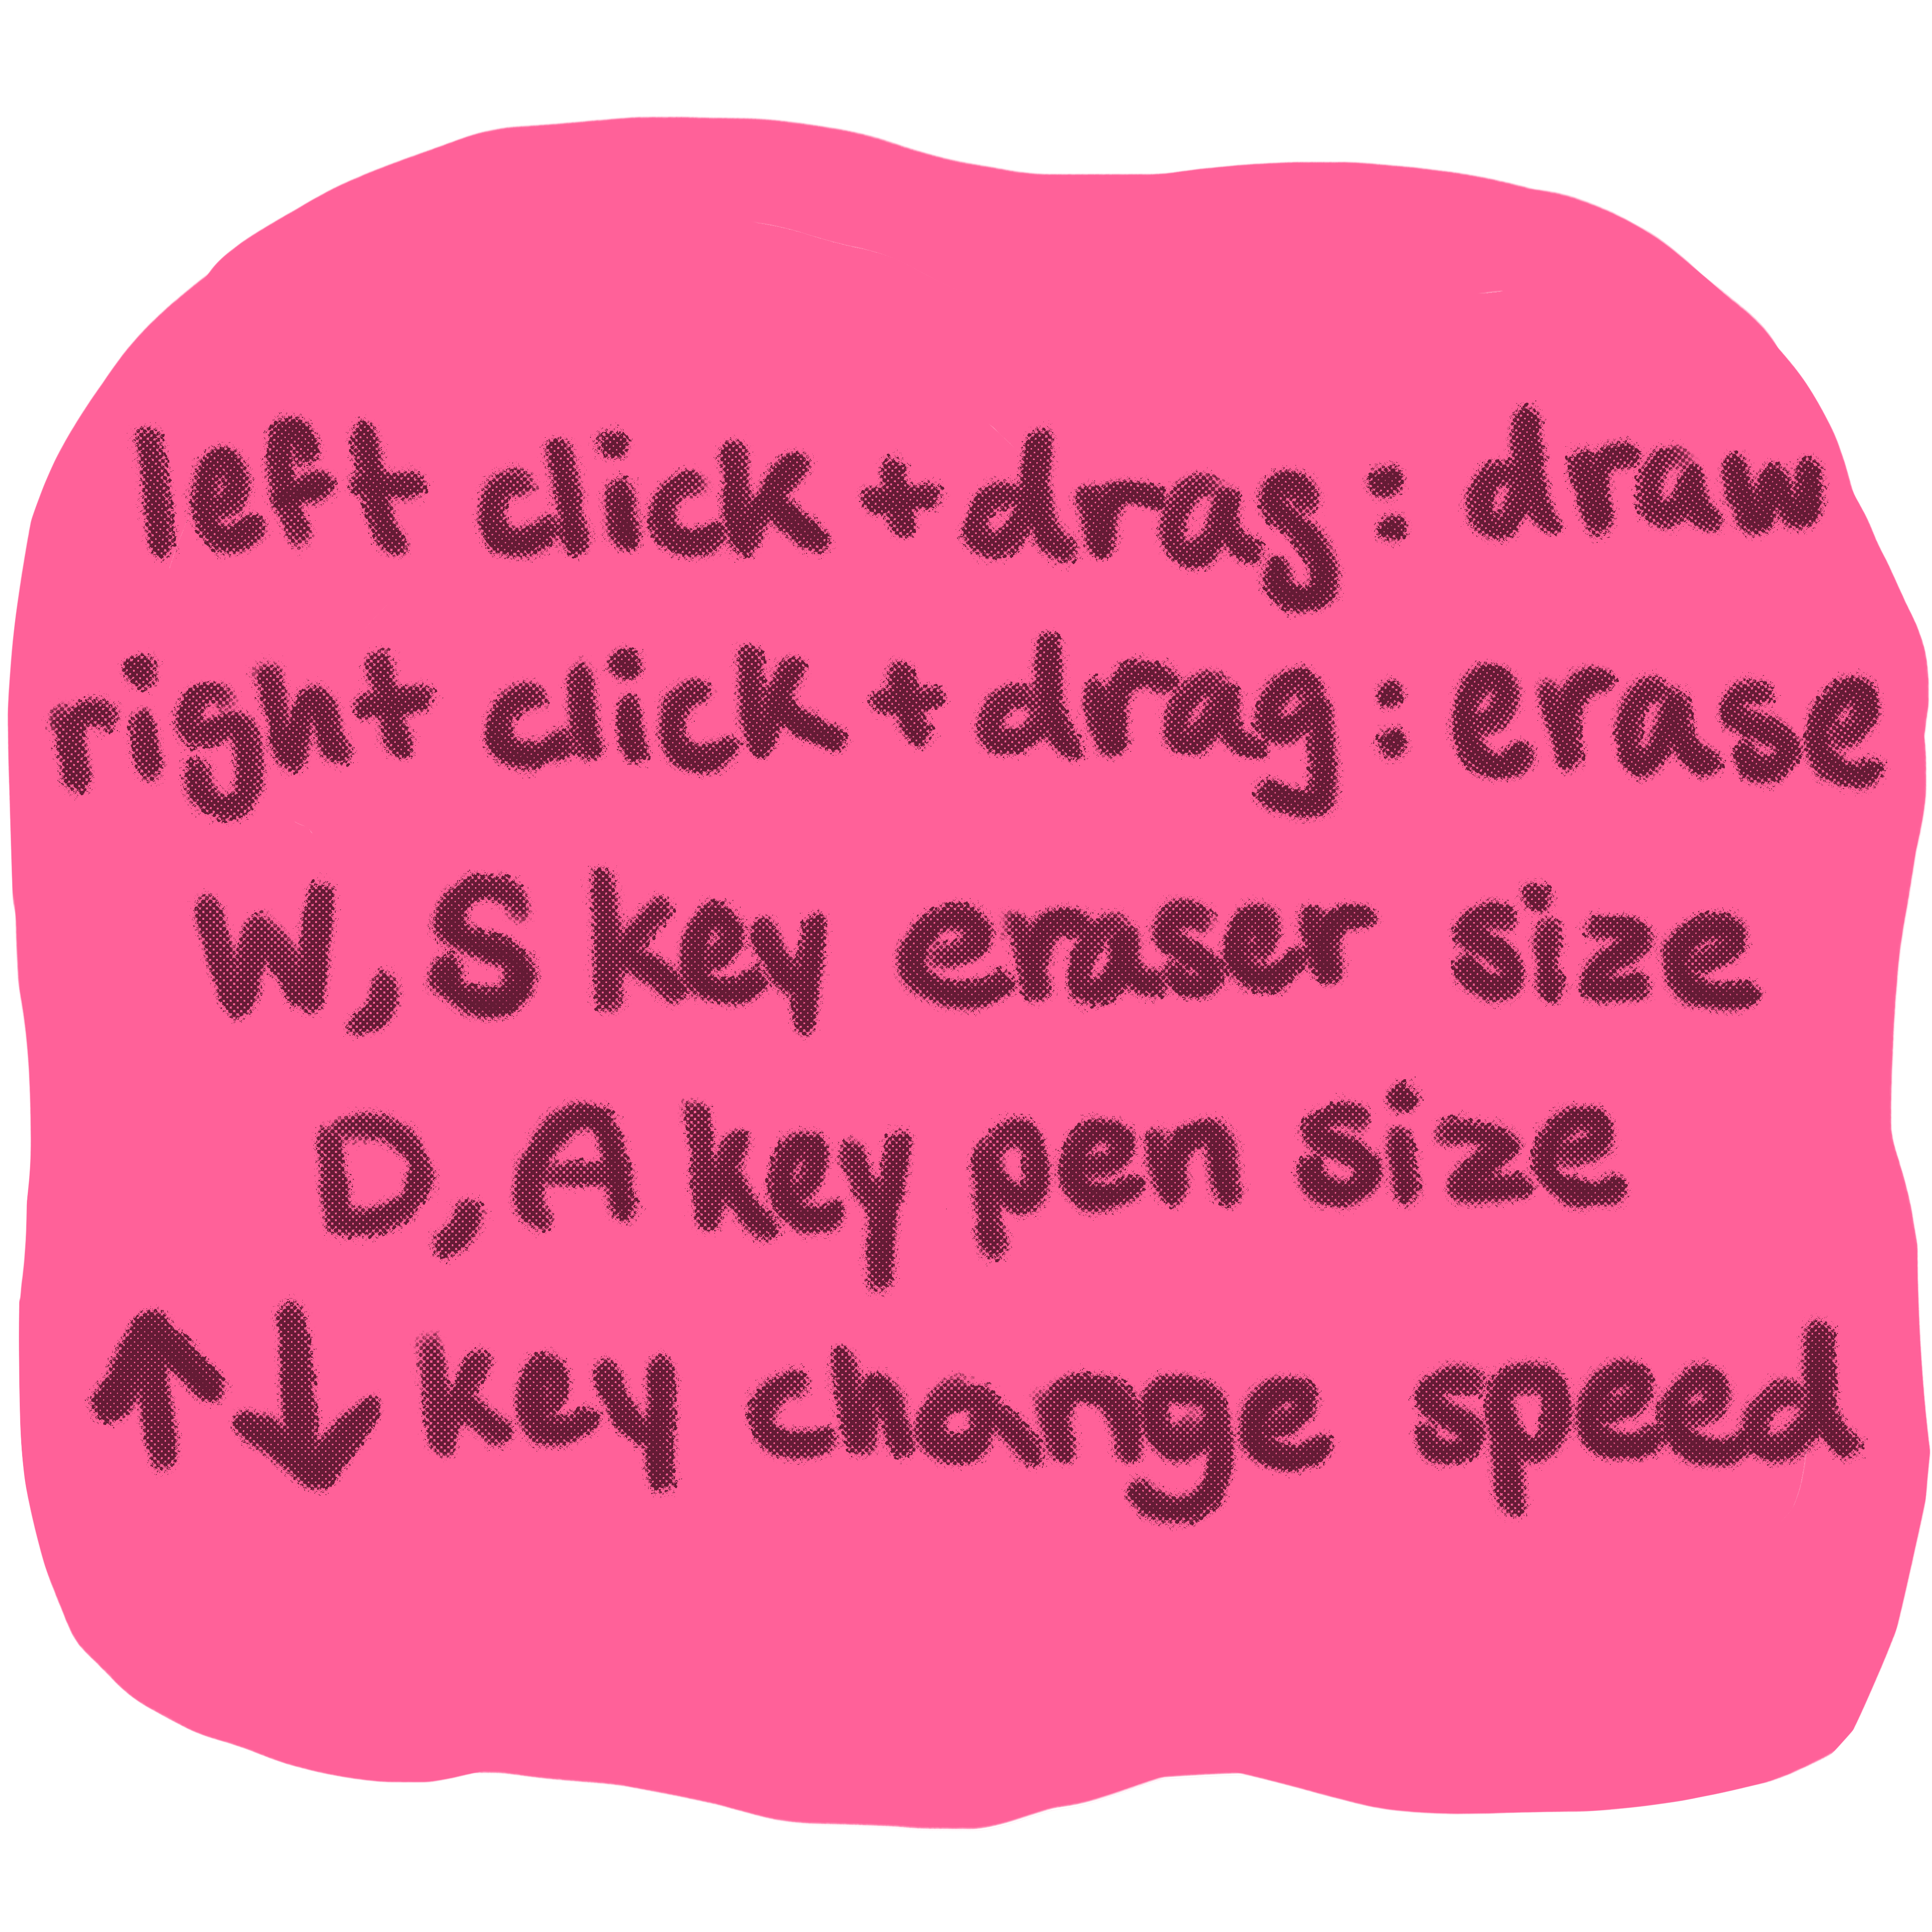 left click + drag : draw
right click + drag : erase
W, S key eraser size
D, A key pen size
↑↓ key change speed